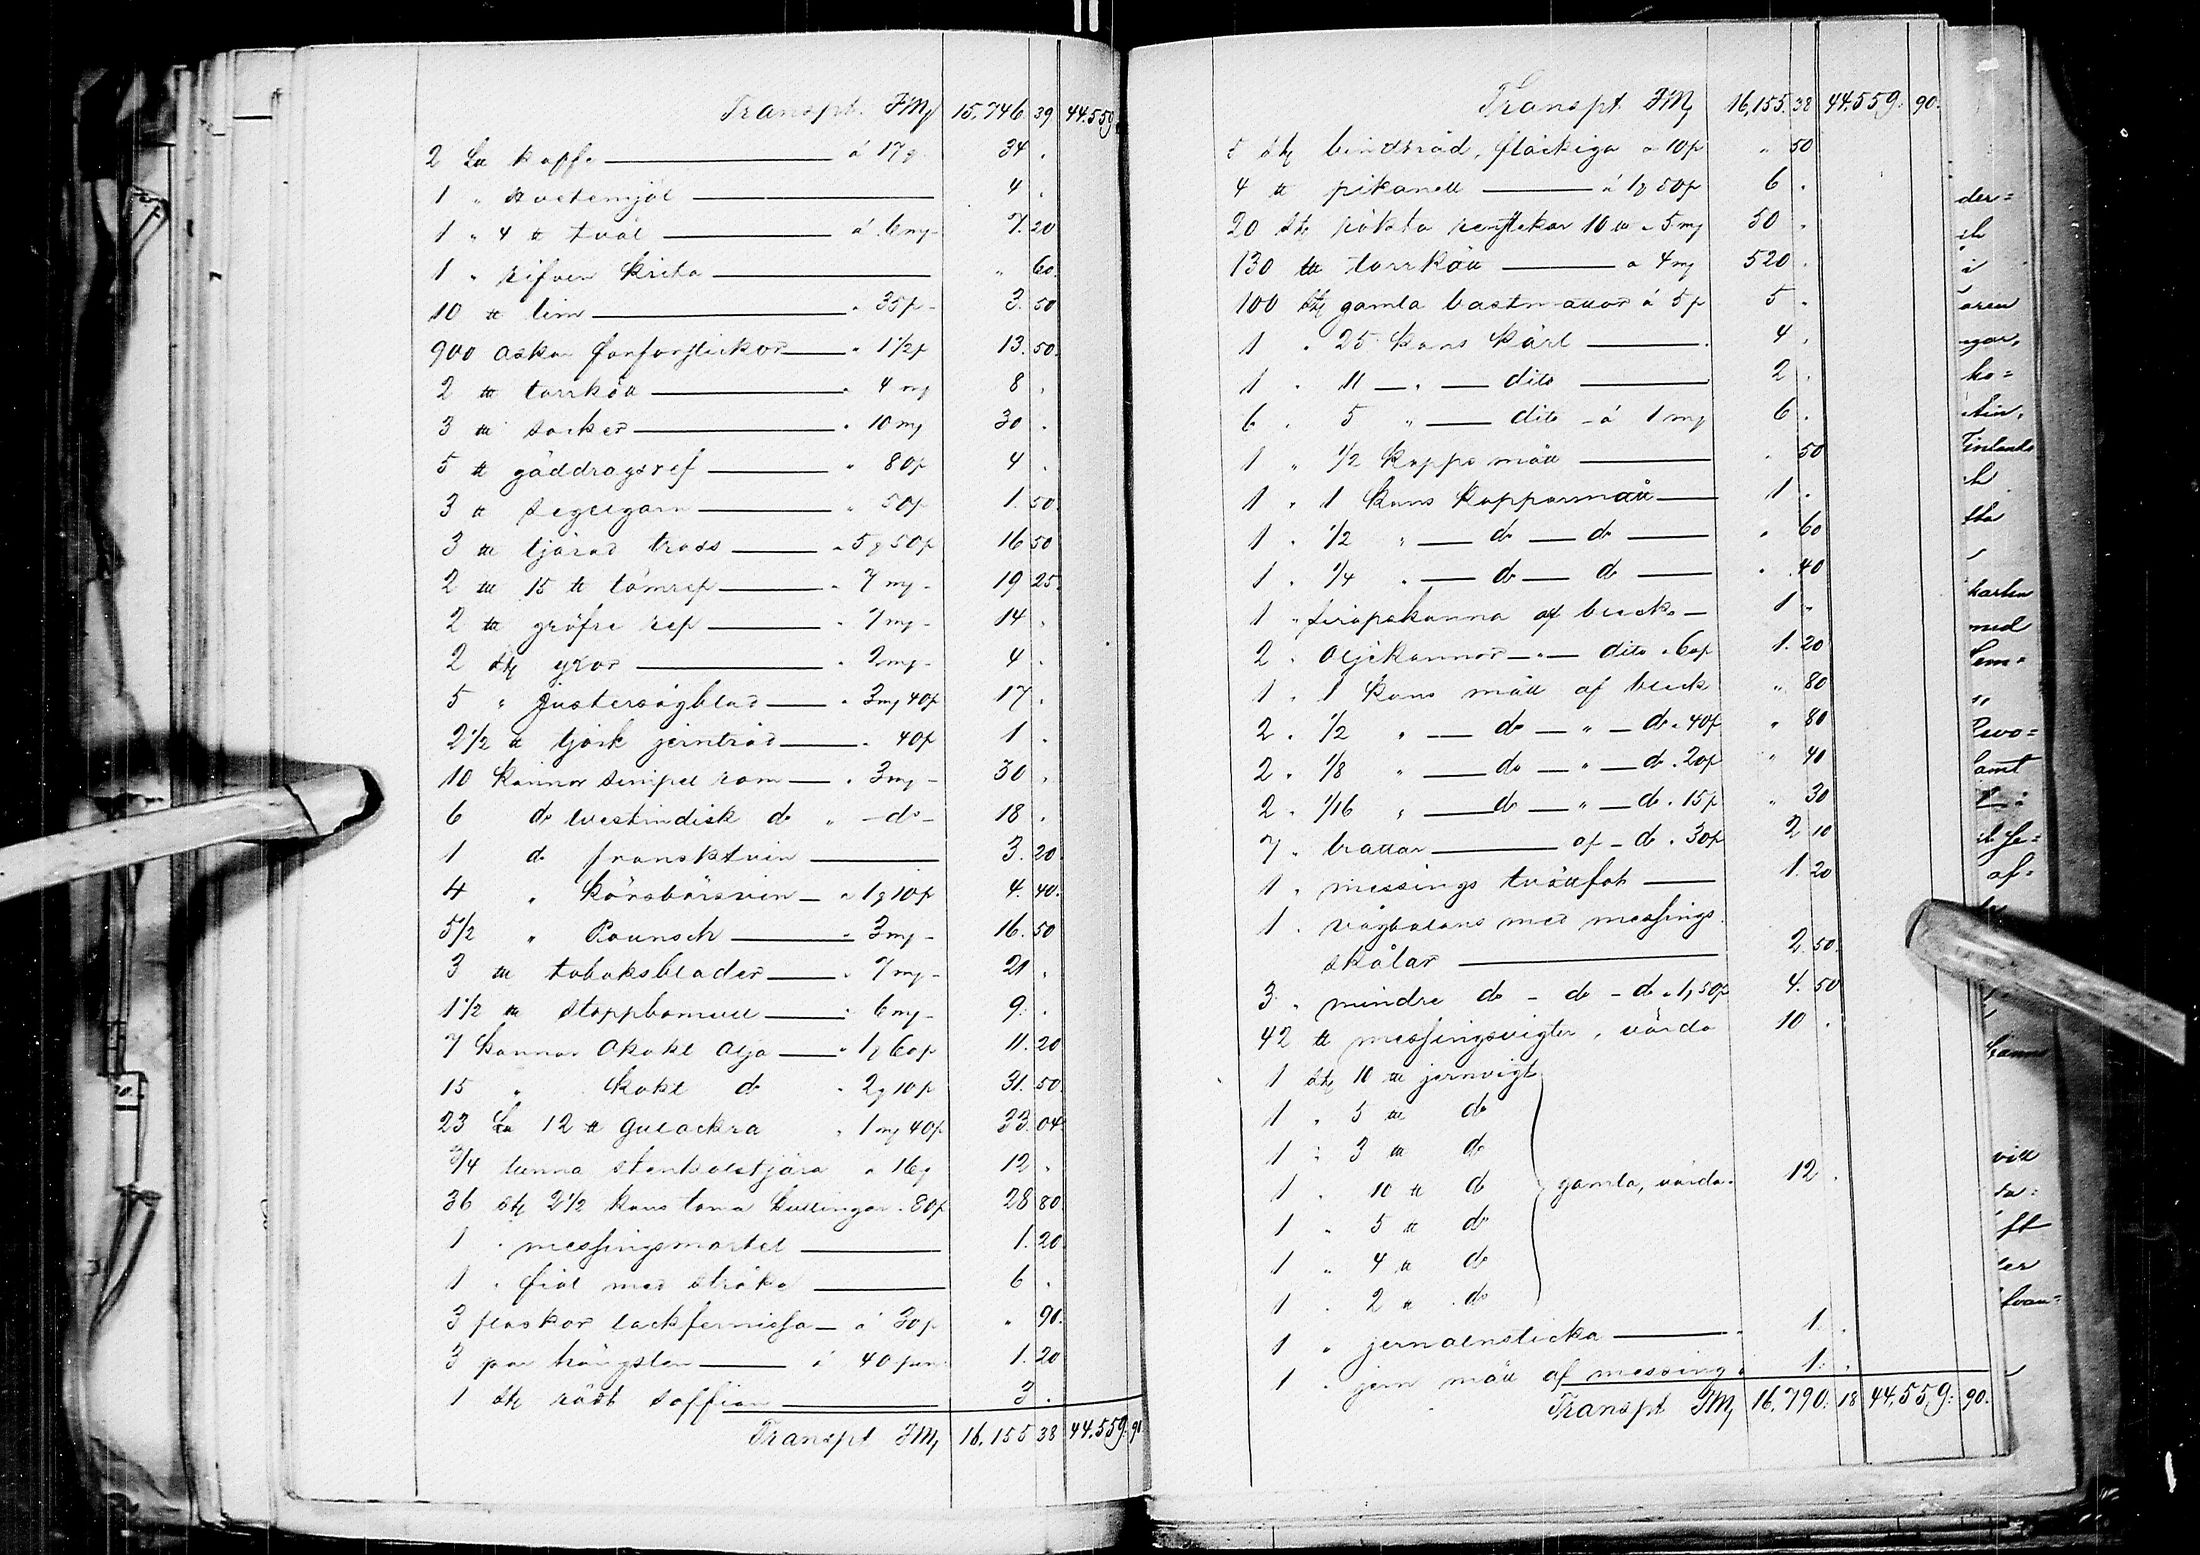 Transpt. FMk 15,746 39 44.559
2 L℔ kaffe — á 17 mk 34 .
1 " hvetemjöl — 4 .
1 " 4 ℔ tvål — á 6 mk 7. 20
1 " rifven krita — " 60.
10 ℔ lim — " 35 p 3. 50
900 askar fosforstickor — " 1½ p 13. 50.
2 L℔ torrkött — " 4 mk 8 .
3 L℔ socker — " 10 mk 30 .
5 ℔ gäddragsref — " 80 p 4 .
3 ℔ segelgarn — " 50 p 1. 50
3 L℔ tjärad tross — " 5 mk 50 p 16 50
2 L℔ 15 ℔ tömrep — " 7 mk 19 25.
2 L℔ gröfre rep — " 7 mk 14 .
2 stk yxor — " 2 mk 4 .
5 " justersågblad — " 3 mk 40 p 17 .
2½ ℔ tjock jerntråd — " 40 p 1 .
10 kannor simpel rom — " 3 mk 30 .
6 do westindisk do " — do — 18 .
1 do franskt vin — 3. 20
4 " körsbärsvin — " 1 mk 10 p 4. 40.
5½ " Pounsch — " 3 mk 16. 50
3 L℔ tobaksblader — " 7 mk 21 .
1½ L℔ stoppbomull — " 6 mk 9. .
7 kannor okokt olja — " 1 mk 60 p 11. 20
15 " kokt do " 2 mk 10 p 31. 50.
23 L℔ 12 ℔ gulockra " 1 mk 40 p 33. 04.
3/4 tunna stenkolstjära " 16 mk 12 .
36 stk 2½ kans toma kuttingar " 80 p 28 80.
1 " messingsmortel — 1. 20
1 " fiol med stråke — 6 .
3 flaskor lackfernissa — á 30 p " 90.
3 par hängslen — á 40 pen 1. 20
1 stk rödt saffian — 3 .
Transpt FMk 16,155 38 44.559. 90
Transpt. FMk 16,155. 38 44.559. 90.
5 stk bindtråd, fläckiga á 10 p " 50
4 ℔ pikanell — á 1 mk 50 p 6 .
20 stk rökta renstekar 10 L℔ " 5 mk 50 .
130 L℔ torrkött — á 4 mk 520 .
100 stk gamla bastmattor á 5 p 5 .
1 " 25 kans kärl — 4 .
1 " 11 — " — dito — 2 .
6 " 5 " — dito — á 1 mk 6 .
1 " ½ kapps mått — " 50
1 " 1 kans kopparmått — 1 .
1 " ½ " — do — do — " 60
1 " ¼ " — do — do — " 40
1 " sirapskanna af bleck — 1 .
2 " oljekannor — " — dito " 60 p 1. 20
1 " 1 kans mått af bleck " 80
2 " ½ " — do — " — do " 40 p " 80
2 " 1/8 " — do — " — do " 20 p " 40
2 " 1/16 " — do — " — do " 15 p " 30
7 " trattar — af — do " 30 p 2 10
1 " messings tvättfat — 1. 20
1 " vågbalans med messings
skålar — 2 50.
3 " mindre do — do — do " 1, 50 p 4. 50
42 ℔ messingsvigter, värda 10 .
1 stk 10 L℔ jernvigt
1 " 5 L℔ do
1 " 3 L℔ do
1 " 10 ℔ do gamla, värda 12 .
1 " 5 ℔ do
1 " 4 ℔ do
1 " 2 ℔ do
1 " jernalnsticka — 1. .
1 " jern mått af messing " 1. .
Transpt FMk 16,790. 18 44,559. 90.
der=
ch
i
aren
gar,
ko=
Finlands
ch
med
samt
af=
vill
ft
ler